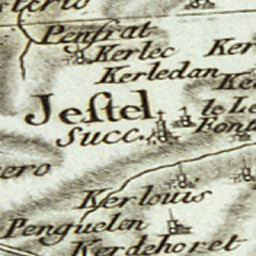 Penſrat
Kerlec
Ker
Kerledan
Ke
Jeſtel
le Le
Succ.
Font
ero
Kerlouis
Penguelen
Kerdehoret